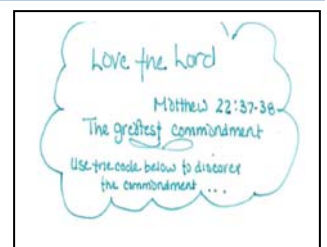 Love the Lord
Matthew 22:37-38
The greatest commandment
Use the code below to discover
the commandment ...